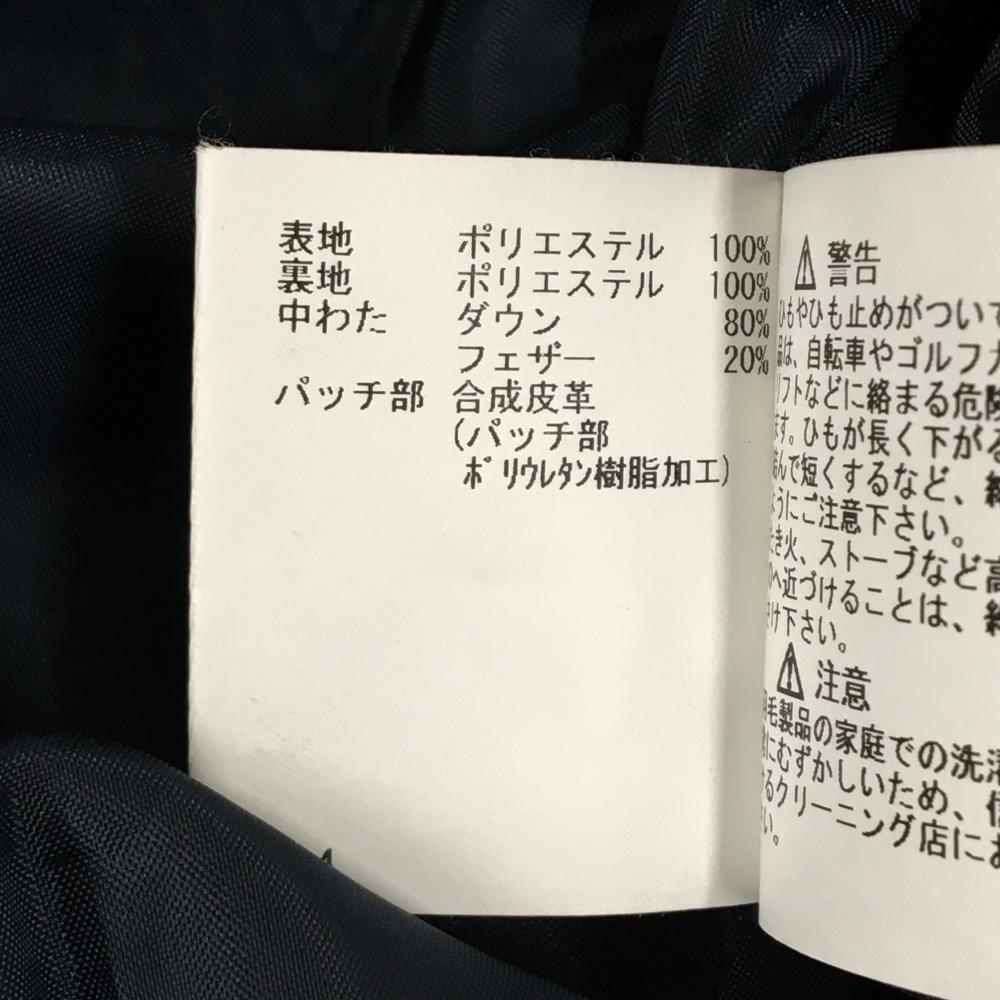 表地 ポリエステル 100%
裏地 ポリエステル 100%
中わた ダウン 80%
フェザー 20%
パッチ部 合成皮革
(パッチ部
ﾎﾟﾘｳﾚﾀﾝ樹脂加工)
⚠ 警告
ひもやひも止めがついて
品は、自転車やゴルフカ
リフトなどに絡まる危険
ます。ひもが長く下がる
んで短くするなど、
ようにご注意下さい。
たき火、ストーブなど高
のへ近づけることは、
け下さい。
⚠ 注意
羽毛製品の家庭での洗濯
にむずかしいため、信
るクリーニング店にお
い。